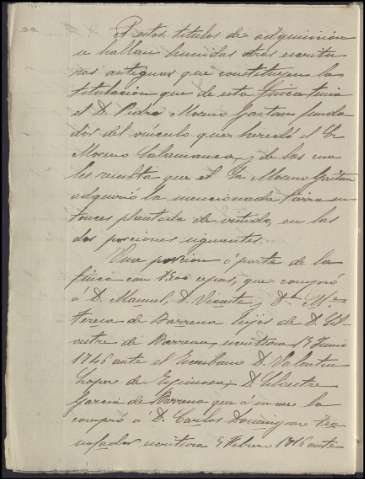 A estos titulos de adquisicion
se hallan unidas otras escritu
ras antiguas que constituyen la
titulacion que de esta finca tenia
el D. Pedro Moreno Gaitan funda
dor del vinculo que heredó el Sr
Moreno Salamanca, y de las cua
les resulta que el Sr Moreno Gaitan
adquirió la mencionada finca en
tonces plantada de viñedo, en las
dos porciones siguientes.
Una porcion ó parte de la
finca con cepas, que compró
á D. Manuel, D. Vicente y Dña Ma
Teresa de Barrena hijos de D. Sil
vestre de Barrena, escritura 17 Junio
1746 ante el Escribano D. Valentin
Lopez de Espinosa, D. Silvestre
Garcia de Barrena que á su vez la
compró á D. Carlos Domingo
escritura Febrero ante